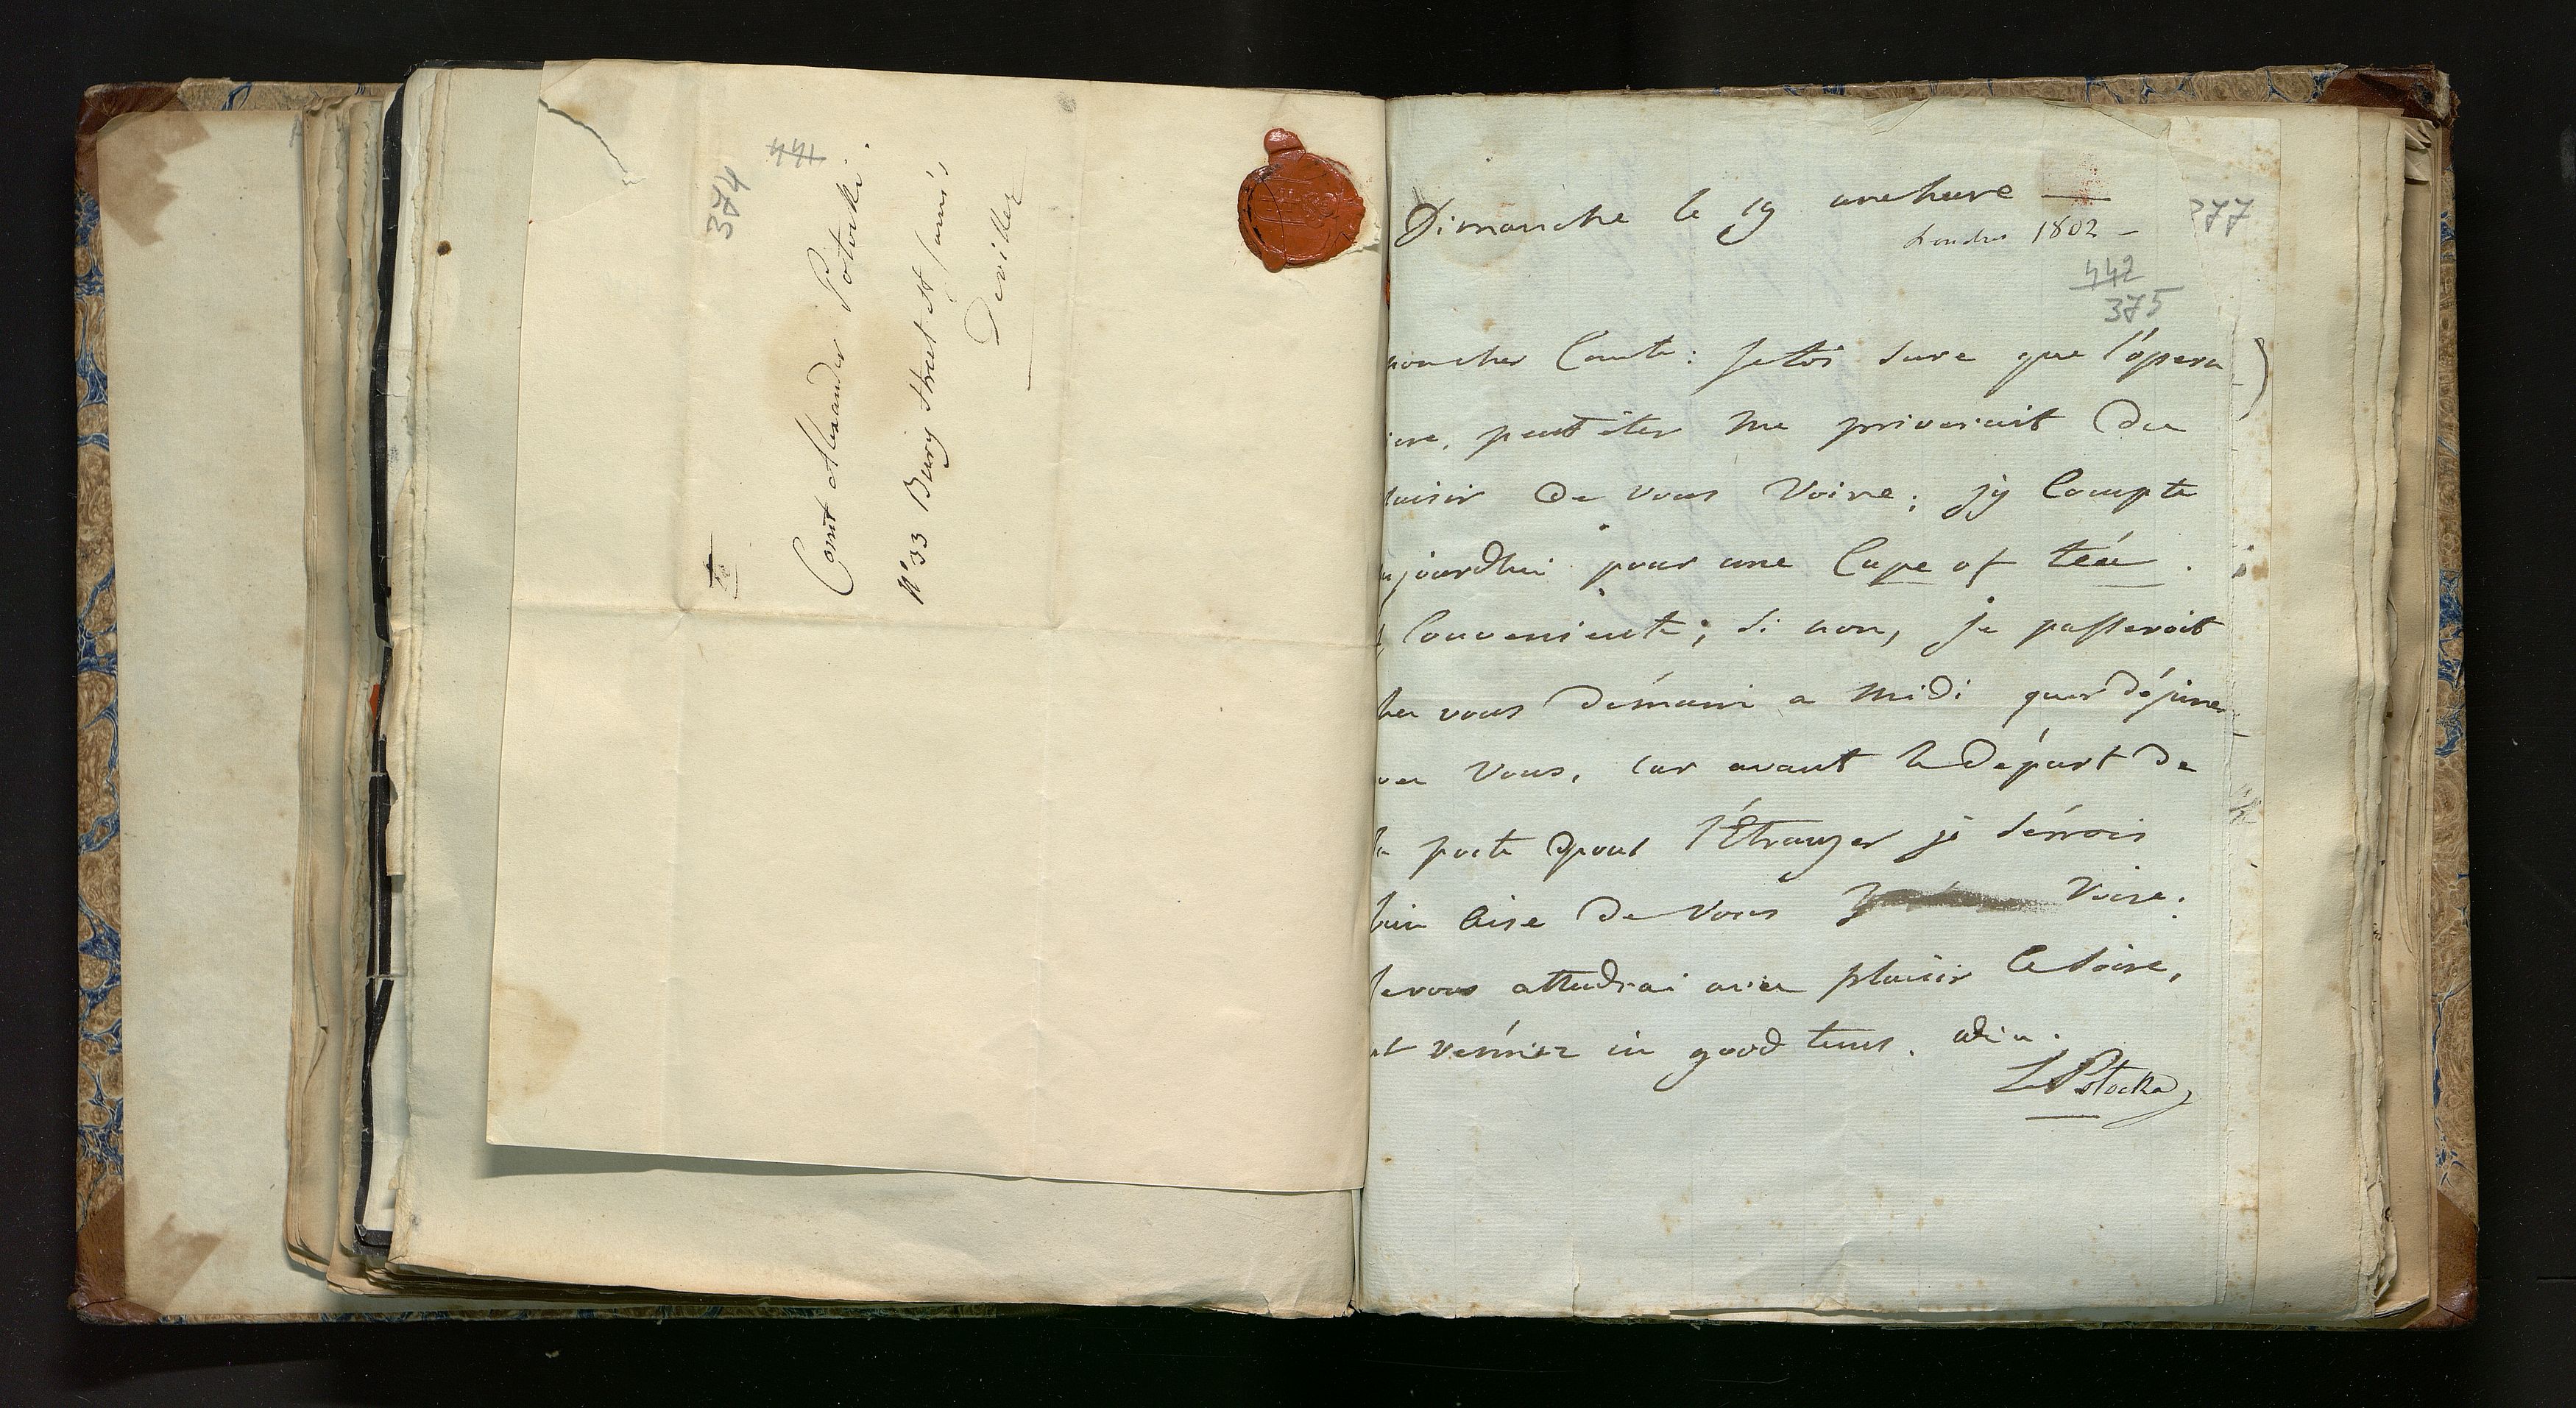 374
441
To
Comt Alexander Potocki.
N° 33 Bury Street St Jami's
Deviller
Dimanche le 19 une heure
Londres 1802 –
377
442
375
moncher Comte: Jetoi sure que l'opera
peut éter me priverait du
laisir de vous Voire; jy Compte
ujourdhui pour une Cupe of téa.
Convenient; si non, je passeroit
hez vous démain a midi pour déjune
vec vous, car avant le départ de
la poste pour l'Étranger je sérrois
bien aise de vous Voire:
Je vous attendrai avec plaisir Ce soire,
et vénnez in good tems. adieu.
L Potocka